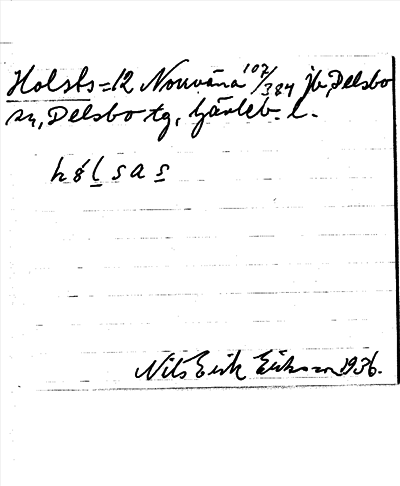 Holsts = 12 Norrväna 107/384 jb, Delsbo
sn, Delsbo tg, Gävleb. l.
h ɇ l s a s
Nils Erik Eriksson 1936.